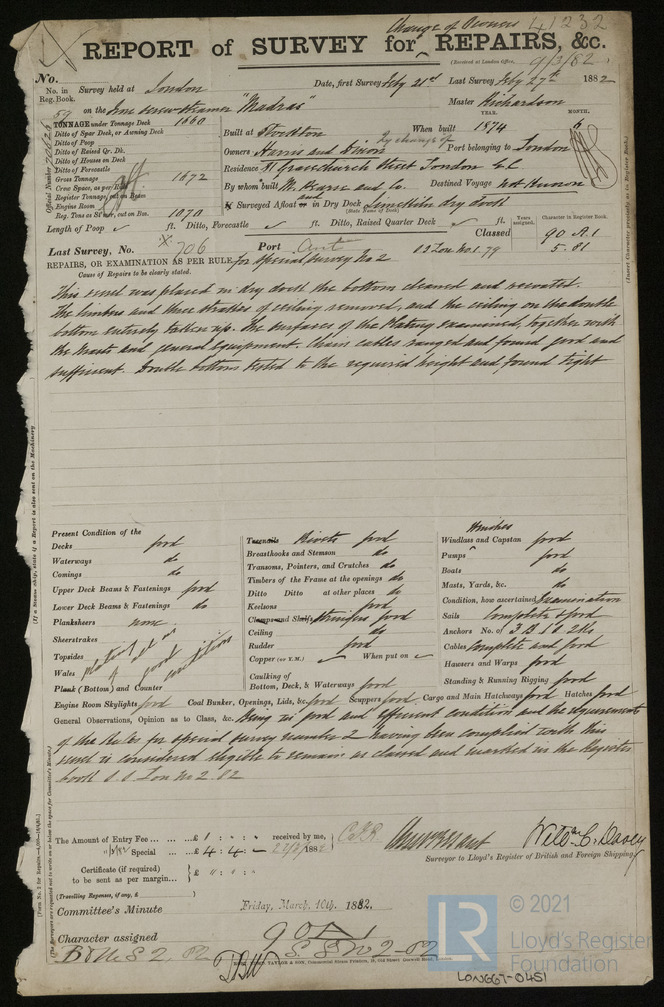 Change of Owners 41232
REPORT of SURVEY for REPAIRS, &c.
(Received at London Office, 9/3/82)
No.
No. in Reg. Book. Survey held at London Date, first Survey Feby 21st Last Survey Feby 27th 1882
59 on the Iron screw steamer "Madras" Master Richardson
TONNAGE under Tonnage Deck 1660
Ditto of Spar Deck, or Awning Deck
Ditto of Poop
Ditto of Raised Qr. Dk.
Ditto of House on Deck
Ditto of Forecastle
Gross Tonnage 1672
Crew Space, as per Rule
Register Tonnage, cut on Beam
Engine Room
Reg. Tons as St'mr, cut on Bm. 1070
Official Number
Built at Stockton When built 1874 MONTH. 6
YEAR.
by change of
Owners Harris and Dixon Port belonging to London
Residence 81 Gracechurch Street London E.C.
By whom built M. Pearse and Co. Destined Voyage not known
If Surveyed Afloat and in Dry Dock Limekiln dry dock
(State Name of Dock)
Length of Poop ft. Ditto, Forecastle ft. Ditto, Raised Quarter Deck ft.
Years assigned. Character in Register Book.
Classed 90 A1
5.81
Last Survey, No. 706 Port
REPAIRS, OR EXAMINATION AS PER RULE, for Special Survey No 2
Cause of Repairs to be clearly stated.
This vessel was placed in dry dock the bottom cleaned and recoated.
The limbers and three strakes of ceiling removed, and the ceiling on the double
bottom entirely taken up. The surfaces of the Plating examined, together with
the masts and general Equipment. Chain cables ranged and found good and
sufficient. Double bottoms tested to the required height and found tight
Present Condition of the
Decks good
Waterways do
Comings do
Upper Deck Beams & Fastenings good
Lower Deck Beams & Fastenings do
Planksheers none
Sheerstrakes
Topsides
Wales
Plank (Bottom) and Counter
Plating all in good condition
Treenails Rivets good
Breasthooks and Stemson do
Transoms, Pointers, and Crutches do
Timbers of the Frame at the openings do
Ditto Ditto at other places do
Keelsons good
Clamps and Shelfs Stringers good
Ceiling do
Rudder good
Copper (or Y.M.) When put on
Caulking of
Bottom, Deck, & Waterways good
Winches
Windlass and Capstan good
Pumps good
Boats do
Masts, Yards, &c. do
Condition, how ascertained Examination
Sails Complete & good
Anchors No. of 3 B 1 S 2 Ks
Cables complete and good
Hawsers and Warps good
Standing & Running Rigging good
Engine Room Skylights good Coal Bunker, Openings, Lids, &c. good Scuppers good Cargo and Main Hatchways good Hatches good
General Observations, Opinion as to Class, &c. Being in good and efficient condition and the requirements
of the Rules for special survey number 2 having been complied with this
vessel is considered eligible to remain as classed and marked in the Register
book S.S. Lon No 2.82
The Amount of Entry Fee £ 1 : " : " received by me,
Special £ 4 : 4 : – 1882
Certificate (if required) to be sent as per margin £ " : " : "
(Travelling Expenses, if any, £ )
Surveyor to Lloyd's Register of British and Foreign Shipping
Committee's Minute Friday, March 10th 1882.
Character assigned 90 A1
S.S. No 2-82
© 2021
LR
Lloyd's Register
Foundation
LON667-0451